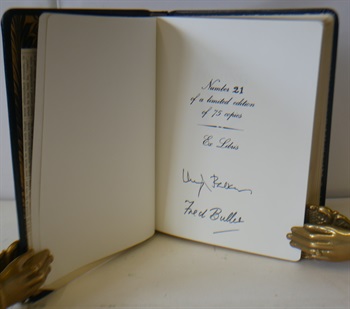 Number 21
of a limited edition
of 75 copies
Ex Libris
Fred Buller